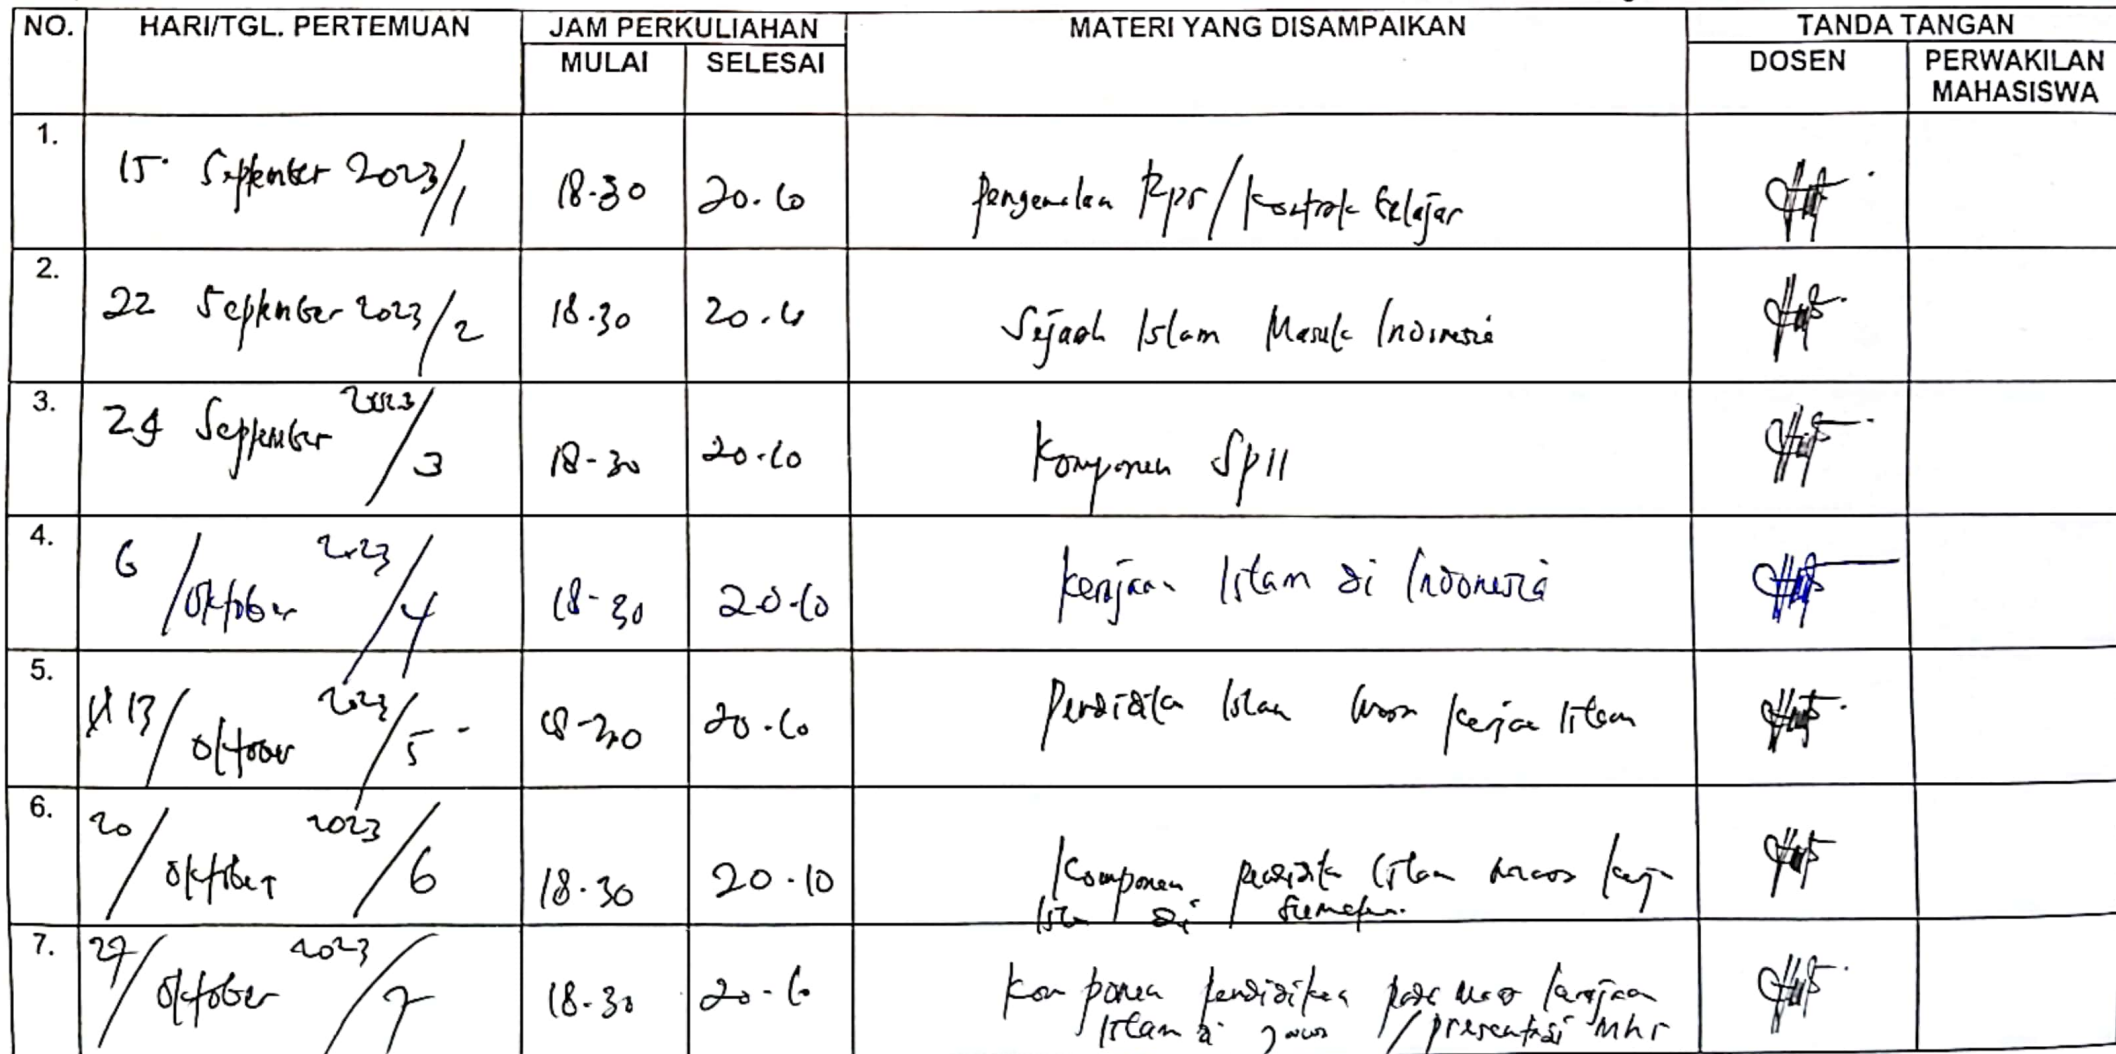 NO. HARI/TGL. PERTEMUAN JAM PERKULIAHAN MATERI YANG DISAMPAIKAN TANDA TANGAN
MULAI SELESAI DOSEN PERWAKILAN
MAHASISWA
1. 15 September 2023/1 18.30 20.10 pengenalan Rps/kontrak belajar
2. 22 September 2023/2 18.30 20.10 Sejarah Islam Masuk Indonesia
3. September 2023/3 18-30 20.10 Komponen SPII
4. 6/Oktober 2023/4 18-30 20.10 kerajaan Islam di Indonesia
5. 13/Oktober 2023/5 18-30 20.10 Pendidikan Islam kerajaan Islam
6. 20/Oktober 2023/6 18.30 20.10 Komponen Islam
di
7. 27/Oktober 2023/7 18.30 20.10 Komponen pendidikan pada kerajaan
Islam di /presentasi Mhs